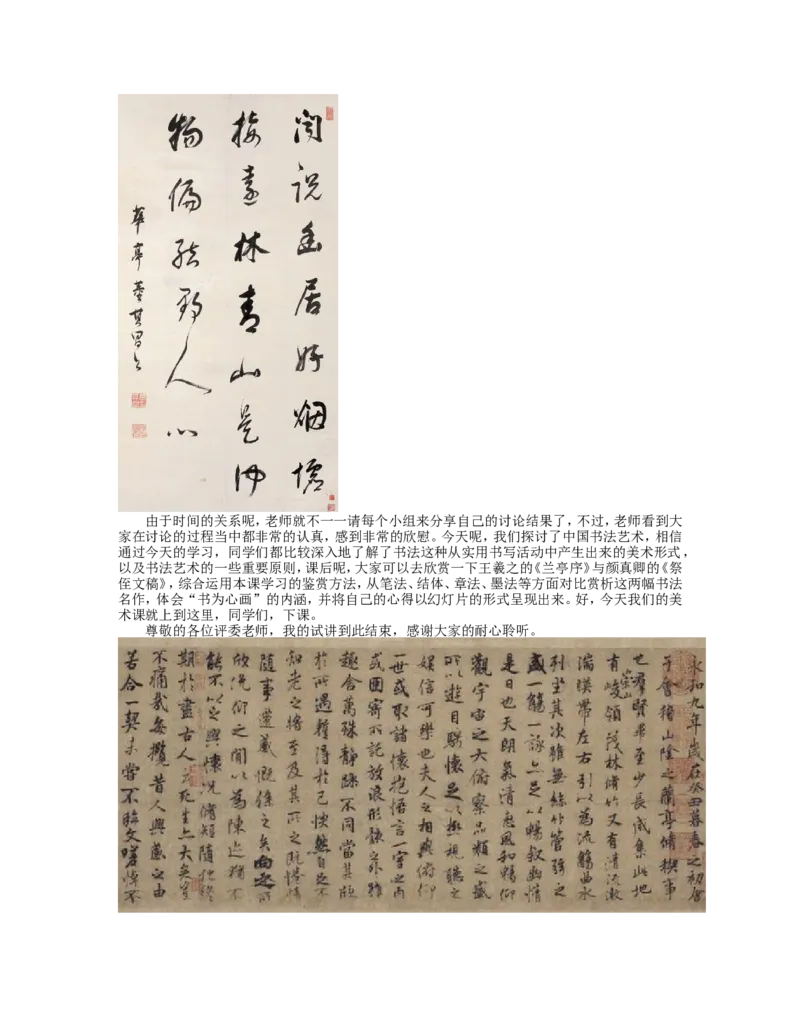 闻说幽居好烟墟
远林青山是何
物偏野人心
华亭董其昌
由于时间的关系呢，老师就不一一请每个小组来分享自己的讨论结果了，不过，老师看到大
家在讨论的过程当中都非常的认真，感到非常的欣慰。今天呢，我们探讨了中国书法艺术，相信
通过今天的学习，同学们都比较深入地了解了书法这种从实用书写活动中产生出来的美术形式，
以及书法艺术的一些重要原则，课后呢，大家可以去欣赏一下王羲之的《兰亭序》与颜真卿的《祭
侄文稿》，综合运用本课学习的鉴赏方法，从笔法、结体、章法、墨法等方面对比赏析这两幅书法
名作，体会“书为心画”的内涵，并将自己的心得以幻灯片的形式呈现出来。好，今天我们的美
术课就上到这里，同学们，下课。
尊敬的各位评委老师，我的试讲到此结束，感谢大家的耐心聆听。
永和九年歲在癸丑暮春之初會
于會稽山陰之蘭亭脩稧事
也群賢畢至少長咸集此地
有崇山峻領茂林脩竹又有清流激
湍暎帶左右引以為流觴曲水
列坐其次雖無絲竹管弦之
盛一觴一詠亦足以暢叙幽情
是日也天朗氣清惠風和暢仰
觀宇宙之大俯察品類之盛
所以遊目騁懷足以極視聽之
娛信可樂也夫人之相與俯仰
一世或取諸懷抱悟言一室之內
或因寄所託放浪形骸之外雖
趣舍萬殊靜躁不同當其欣
於所遇暫得於己怏然自足不
知老之將至及其所之既惓情
隨事遷感慨係之矣向之所
欣俛仰之閒以為陳迹猶不
能不以之興懷況脩短隨化終
期於盡古人云死生亦大矣豈
不痛哉每攬昔人興感之由
若合一契未嘗不臨文嗟悼不